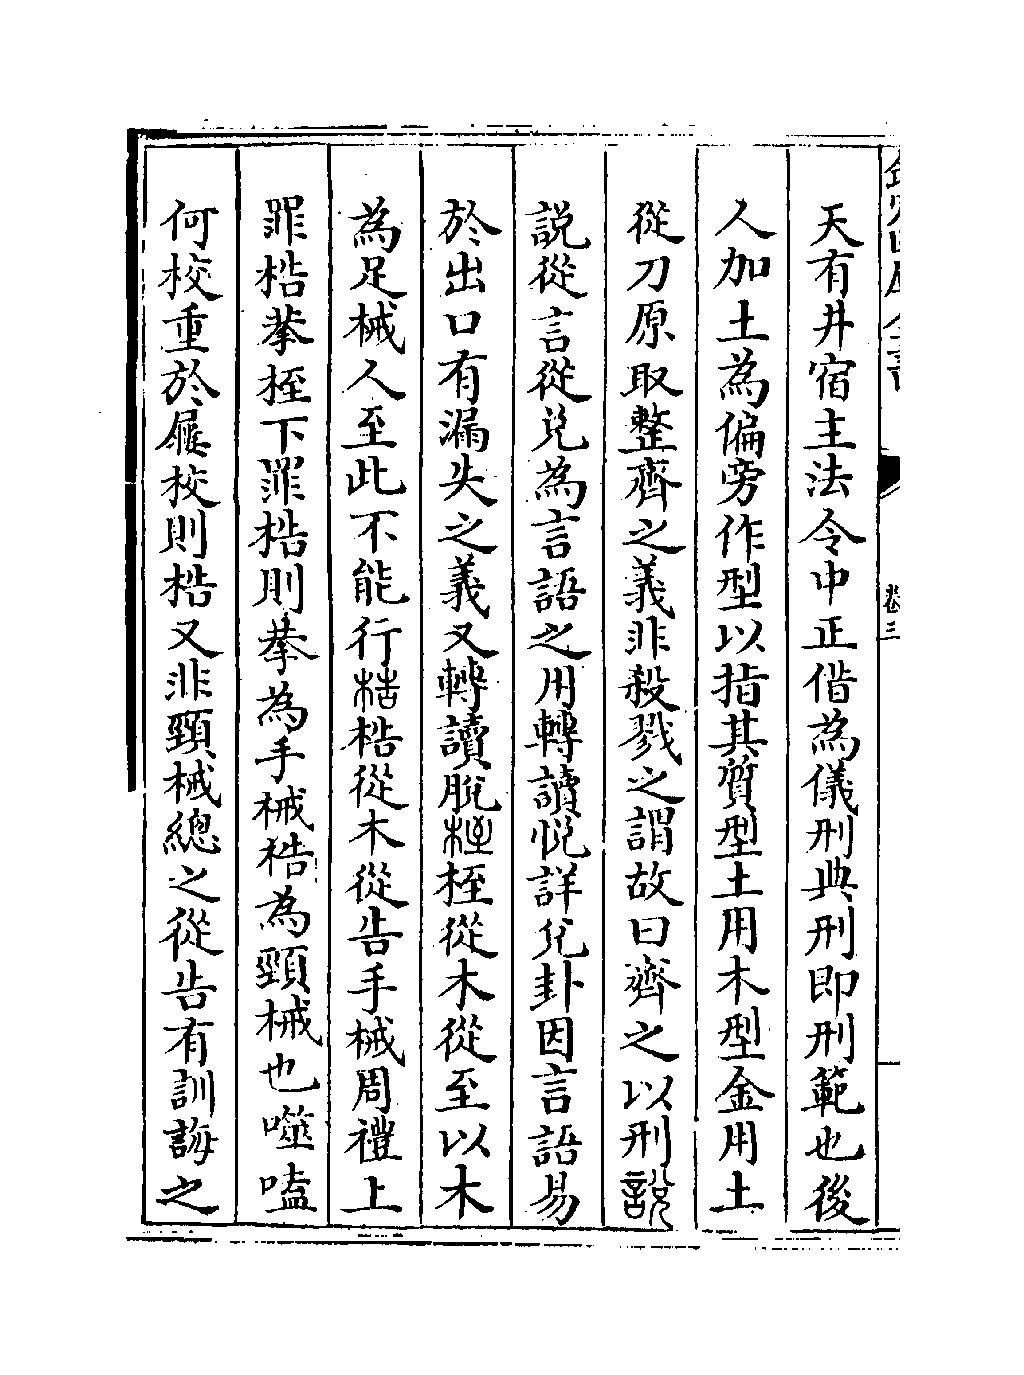 欽定四庫全書
卷三
天有井宿主法令中正借為儀刑典刑即刑範也後
人加土為偏旁作型以指其質型土用木型金用土
從刀原取整齊之義非殺戮之謂故曰齊之以刑說
説從言從兌為言語之用轉讀悦詳兌卦因言語易
於出口有漏失之義又轉讀脫桎桎從木從至以木
為足械人至此不能行梏梏從木從告手械周禮上
罪梏拲桎下罪梏則拲為手械梏為頸械也噬嗑
何校重於屨校則梏又非頸械總之從告有訓誨之